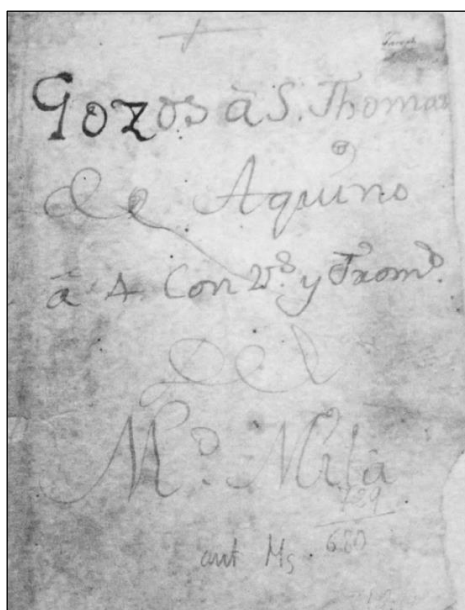 Gozos à S. Thomas
de Aquino
à 4. Con V.s y Tromp.s
del
M.o Milà
689
ant Ms.